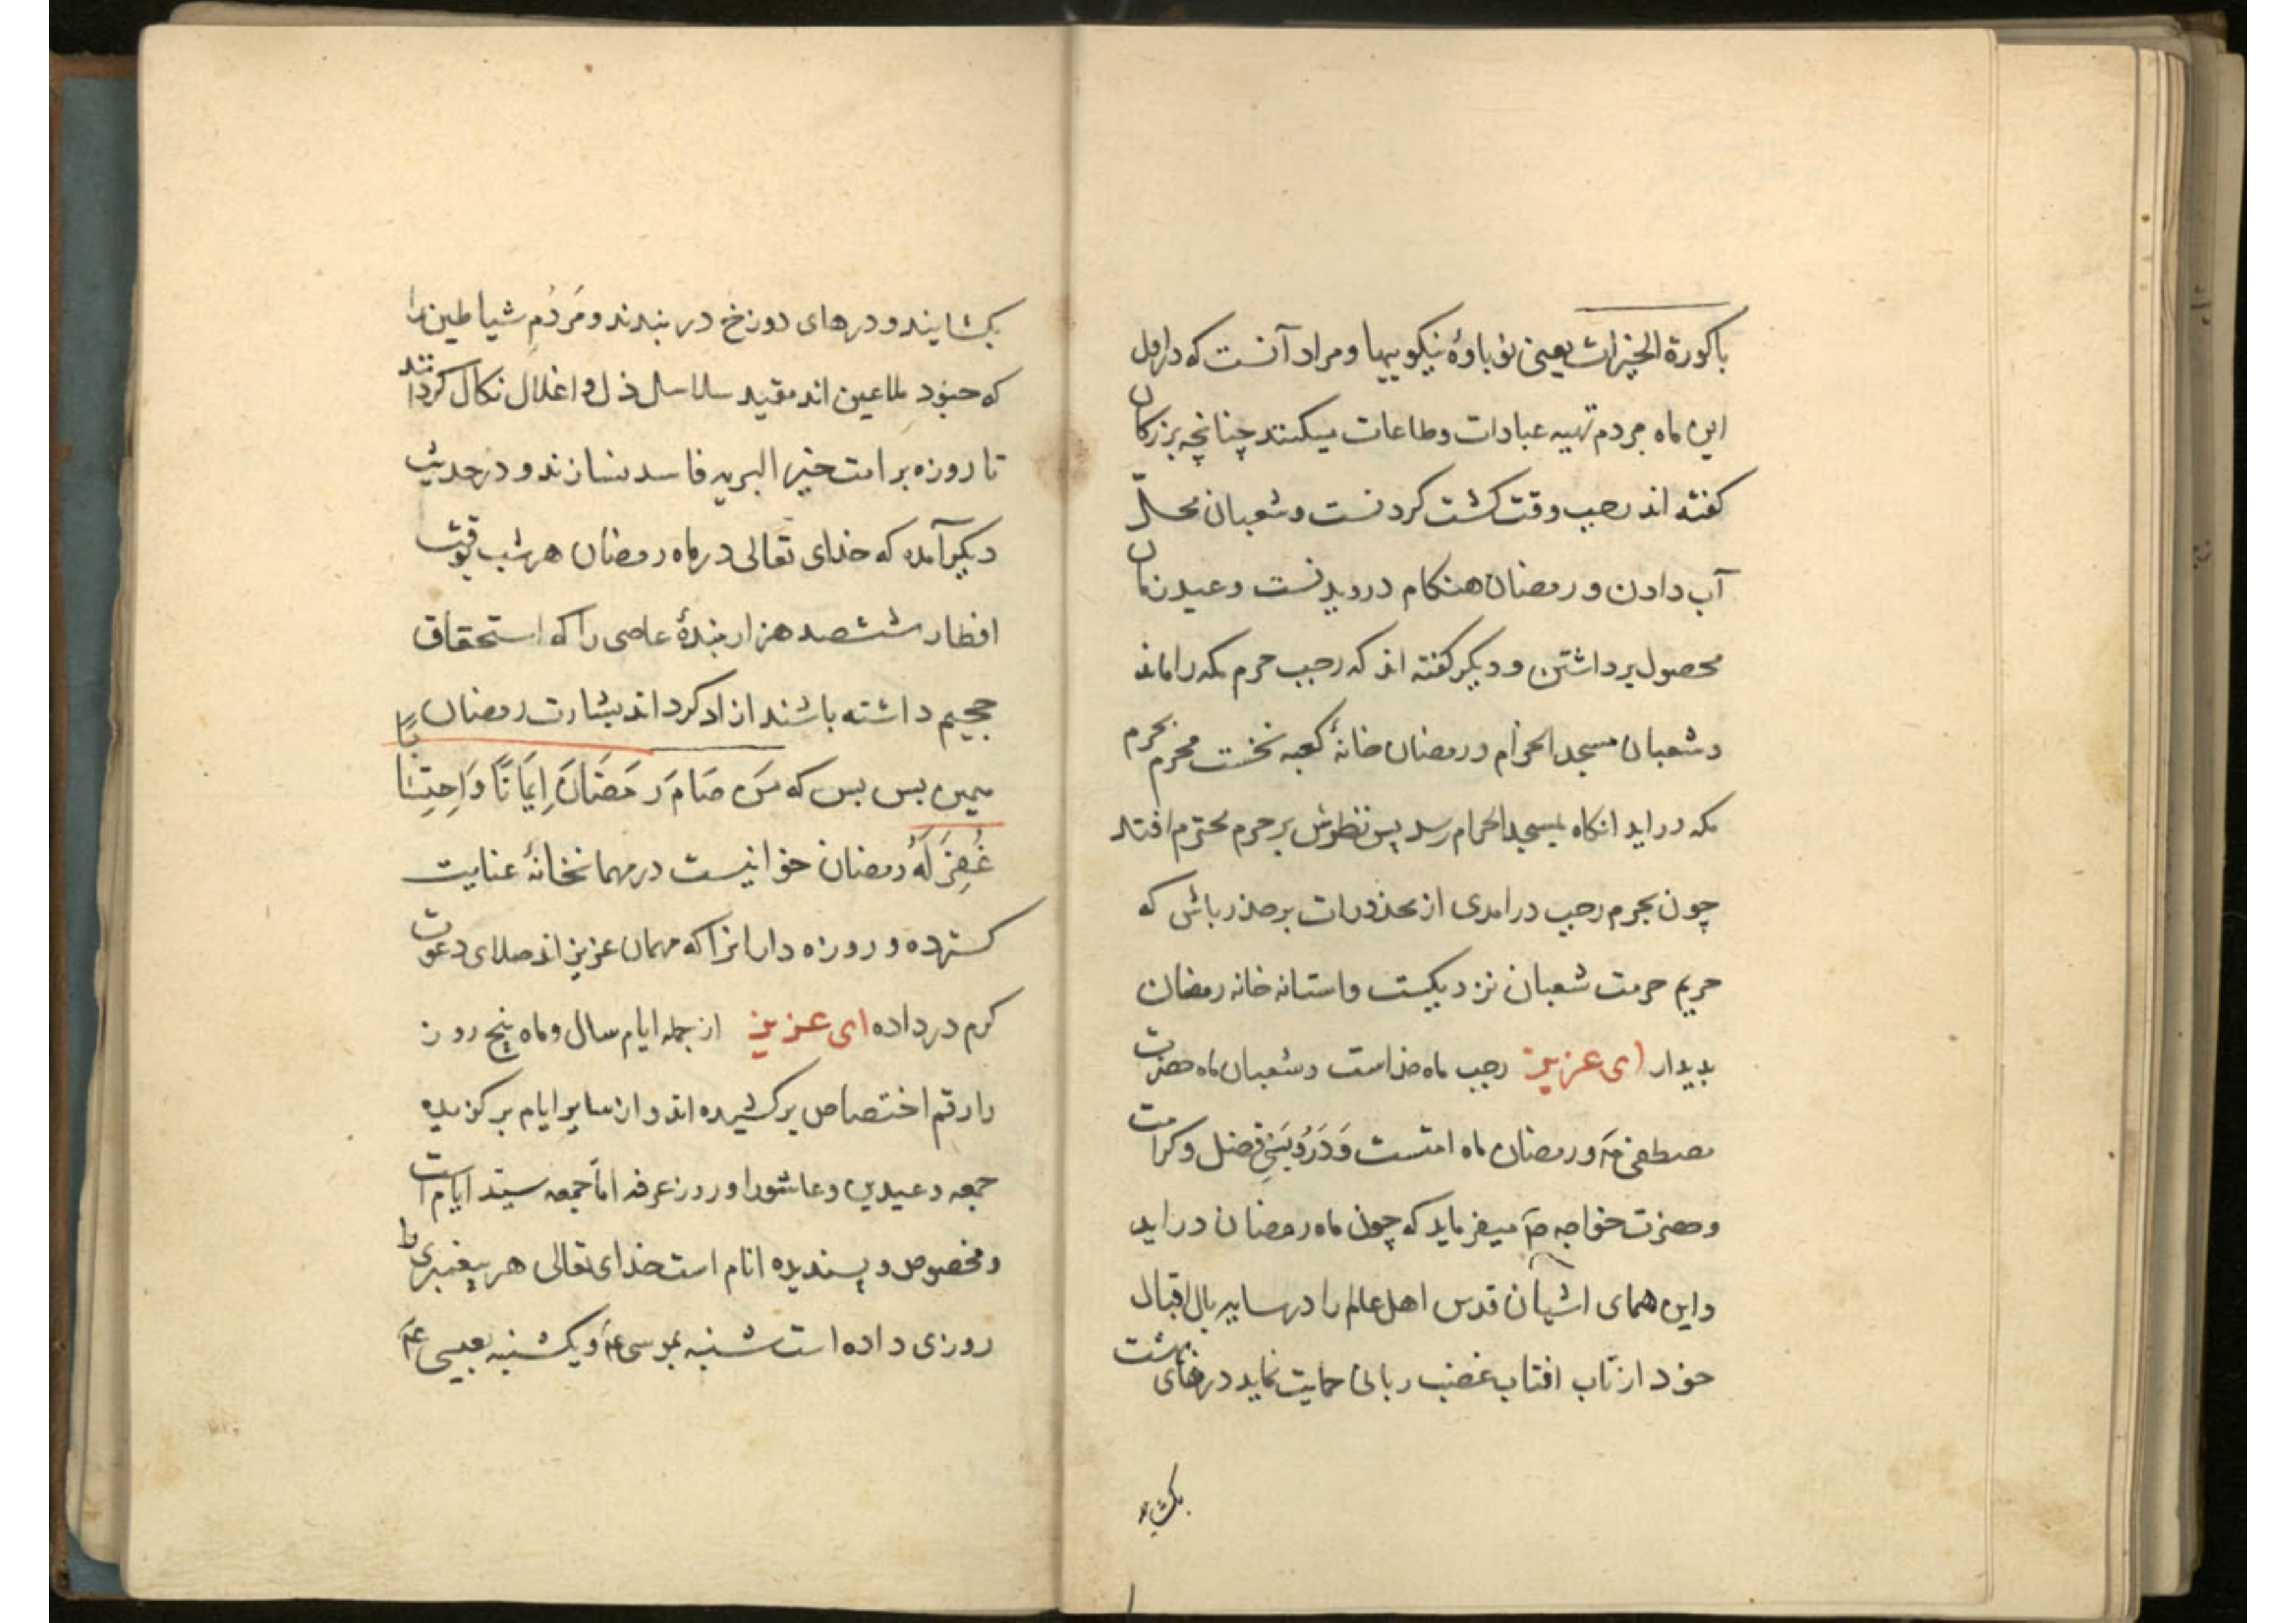 باكورة الخیرات یعنی نوباوهٔ نیکوییها و مراد آنست که در اول
این ماه مردم تهیه عبادات و طاعات میکنند چنانچه بزرکان
کفته اند رجب وقت کشت کردنست و شعبان محلّ
آب دادن و رمضان هنکام درویدنست و عید زمان
محصول برداشتن و دیکر کفته اند که رجب حرم مکه را ماند
و شعبان مسجد الحرام و رمضان خانهٔ کعبه نخست محرم بحرم
مکه دراید انکاه بمسجد الحرام رسد پس نظرش بر حرم محترم افتد
چون بحرم رجب درامدی از محذورات بر حذر باش که
حریم حرمت شعبان نزدیکست و استانه خانه رمضان
بدیدار ای عزیز رجب ماه خداست و شعبان ماه حضرت
مصطفی صٓ و رمضان ماه امتست وَدَر فضل و کرامت
و حضرت خواجه صٓ میفرماید که چون ماه رمضان دراید
و این همای اشیان قدس اهل عالم را در سایه بال اقبال
خود از تاب افتاب غضب ربانی حمایت نماید درهای بهشت
بکشایند
بکشایند و درهای دوزخ در بندند و مَردُمِ شیاطین را
که جنود ملاعین اند مقید سلاسل ذل و اغلال نکال کردانند
تا روزه بر امت خیر البریه فاسد نسازند و در حدیث
دیکر آمده که خدای تعالی در ماه رمضان هر شب بوقت
افطار ششصد هزار بندهٔ عاصی را که استحقاق
جحیم داشته باشند ازاد کرداند بشارت رمضان
همین بس بس که مَن صَامَ رَمَضَانَ اِیمَانًا وَاحِتِسَابًا
غُفِرَ لَهُ رمضان خوانیست در مهمانخانهٔ عنایت
کسترده و روزه دارانرا که مهمان عزیز اند صلای دعوت
کرم در داده ای عزیز از جمله ایام سال و ماه پنج روز
را رقم اختصاص بر کشیده اند و از سایر ایام بر کزیده
جمعه و عیدین و عاشورا و روز عرفه امّا جمعه سیّد ایام است
و مخصوص و پسندیده انام است خدای تعالی هر پیغمبری را
روزی داده است شنبه بموسی عٓم و یکشنبه بعیسی عٓم